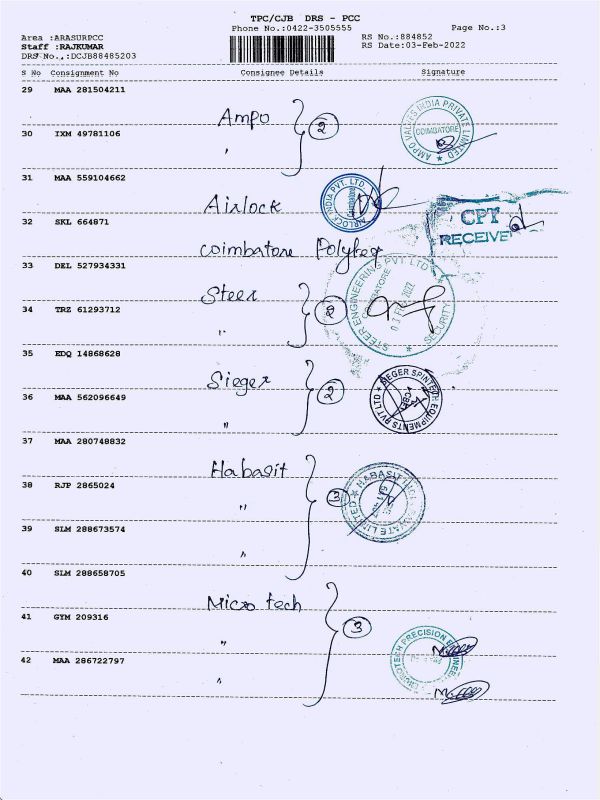 TPC/CJB DRS - PCC
Phone No.:0422-3505555
Page No.:3
Area :ARASURPCC
RS No.:884852
Staff :RAJKUMAR
RS Date:03-Feb-2022
DRS No.,:DCJB88485203
S No Consignment No Consignee Details Signature
29 MAA 281504211
Ampo 2
AMPO VALVES INDIA PRIVATE LIMITED
COIMBATORE
30 IXM 49781106
"
31 MAA 559104662
Airlock
AIRLOCK INDIA PVT. LTD
32 SKL 664871
Coimbatore Polytex
CPT
RECEIVE
33 DEL 527934331
Steer 2
STEER ENGINEERING PVT LTD
COIMBATORE
FEB 2022
SECURITY
34 TRZ 61293712
"
35 EDQ 14868628
Sieger 2
EQUIPMENTS PVT LTD
36 MAA 562096649
"
37 MAA 280748832
Habasit 3
HABASIT
PRIVATE LIMITED
38 RJP 2865024
"
39 SLM 288673574
"
40 SLM 288658705
Micro tech 3
41 GYM 209316
"
MICROTECH PRECISION ENGINEERS
42 MAA 286722797
"